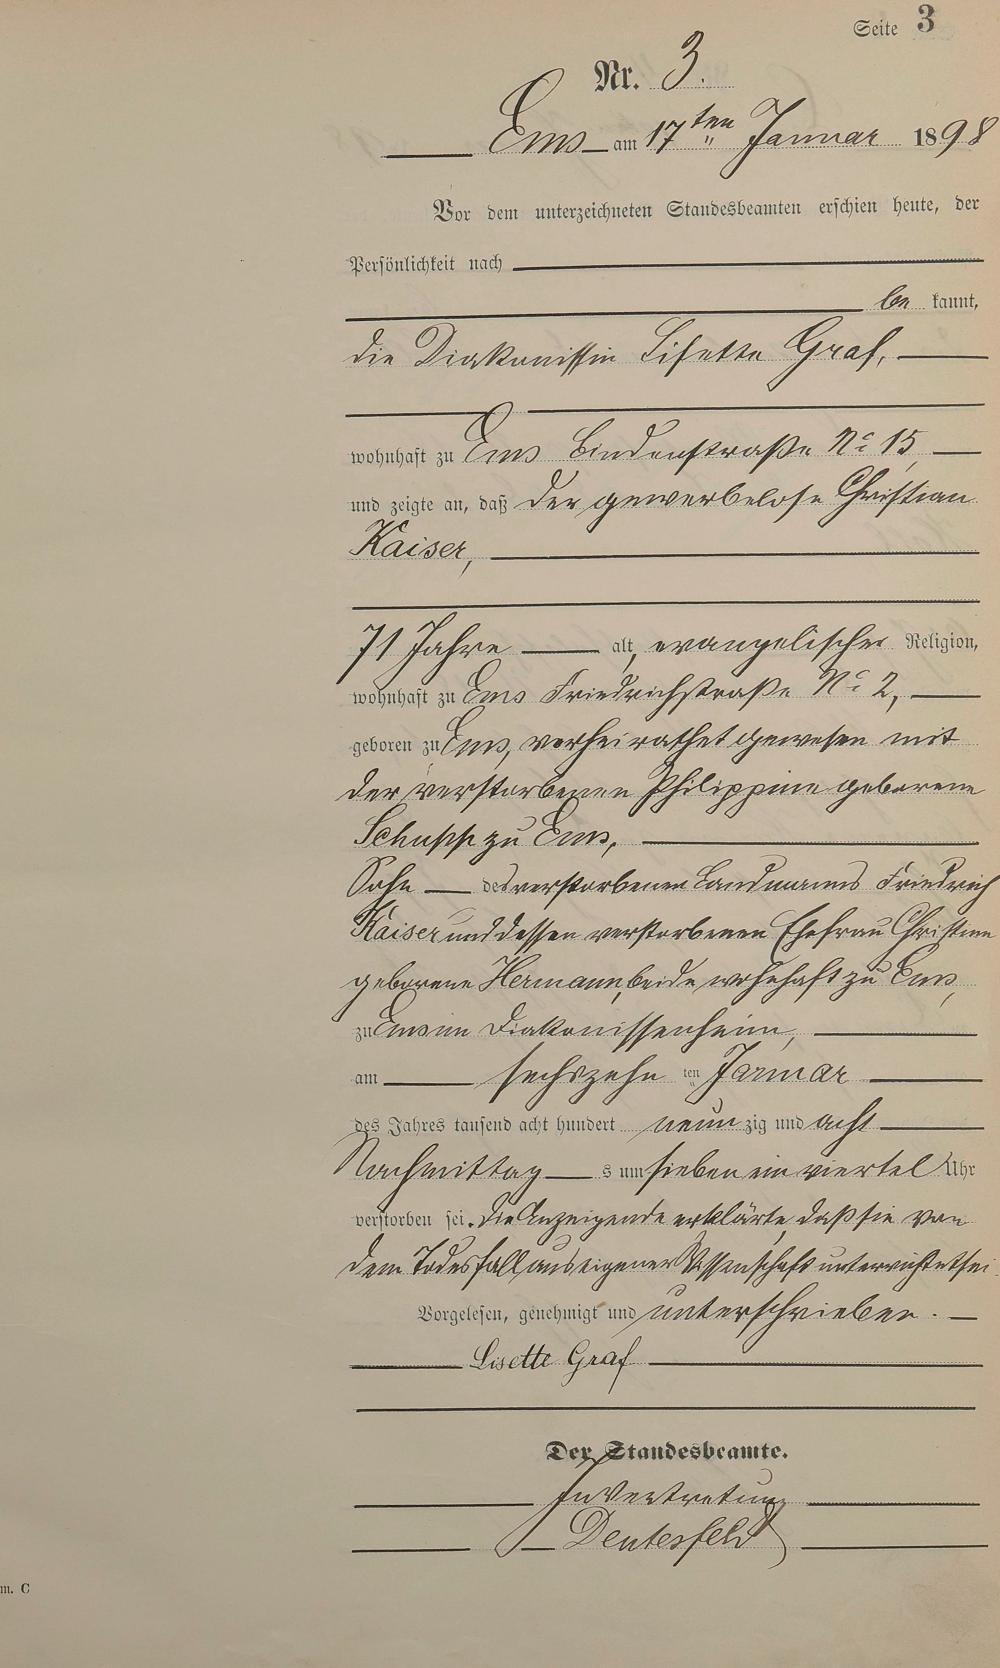 Seite 3
Nr. 3.
Ems am 17ten Januar 1898
Vor dem unterzeichneten Standesbeamten erschien heute, der
Persönlichkeit nach
be kannt,
die Diakonissin Lisette Graf,
wohnhaft zu Ems Lindenstraße No 15,
und zeigte an, daß der gewerbelose Christian
Kaiser,
71 Jahre alt, evangelischer Religion,
wohnhaft zu Ems Friedrichstraße No 2,
geboren zu Ems, verheirathet gewesen mit
der verstorbenen Philippine geborene
Schupp zu Ems,
Sohn des verstorbenen Landmanns Friedrich
Kaiser und dessen verstorbenen Ehefrau Christine
geborene Hermann, beide wohnhaft zu Ems,
zu Ems im Diakonissenheim,
am sechszehn ten Januar
des Jahres tausend acht hundert neun zig und acht
Nachmittag s um sieben ein viertel Uhr
verstorben sei. Die Anzeigende erklärte, daß sie von
dem Todesfall aus eigener Wissenschaft unterrichtet sei.
Vorgelesen, genehmigt und unterschrieben.
Lisette Graf
Der Standesbeamte.
In Vertretung
Deutesfeld
m. C